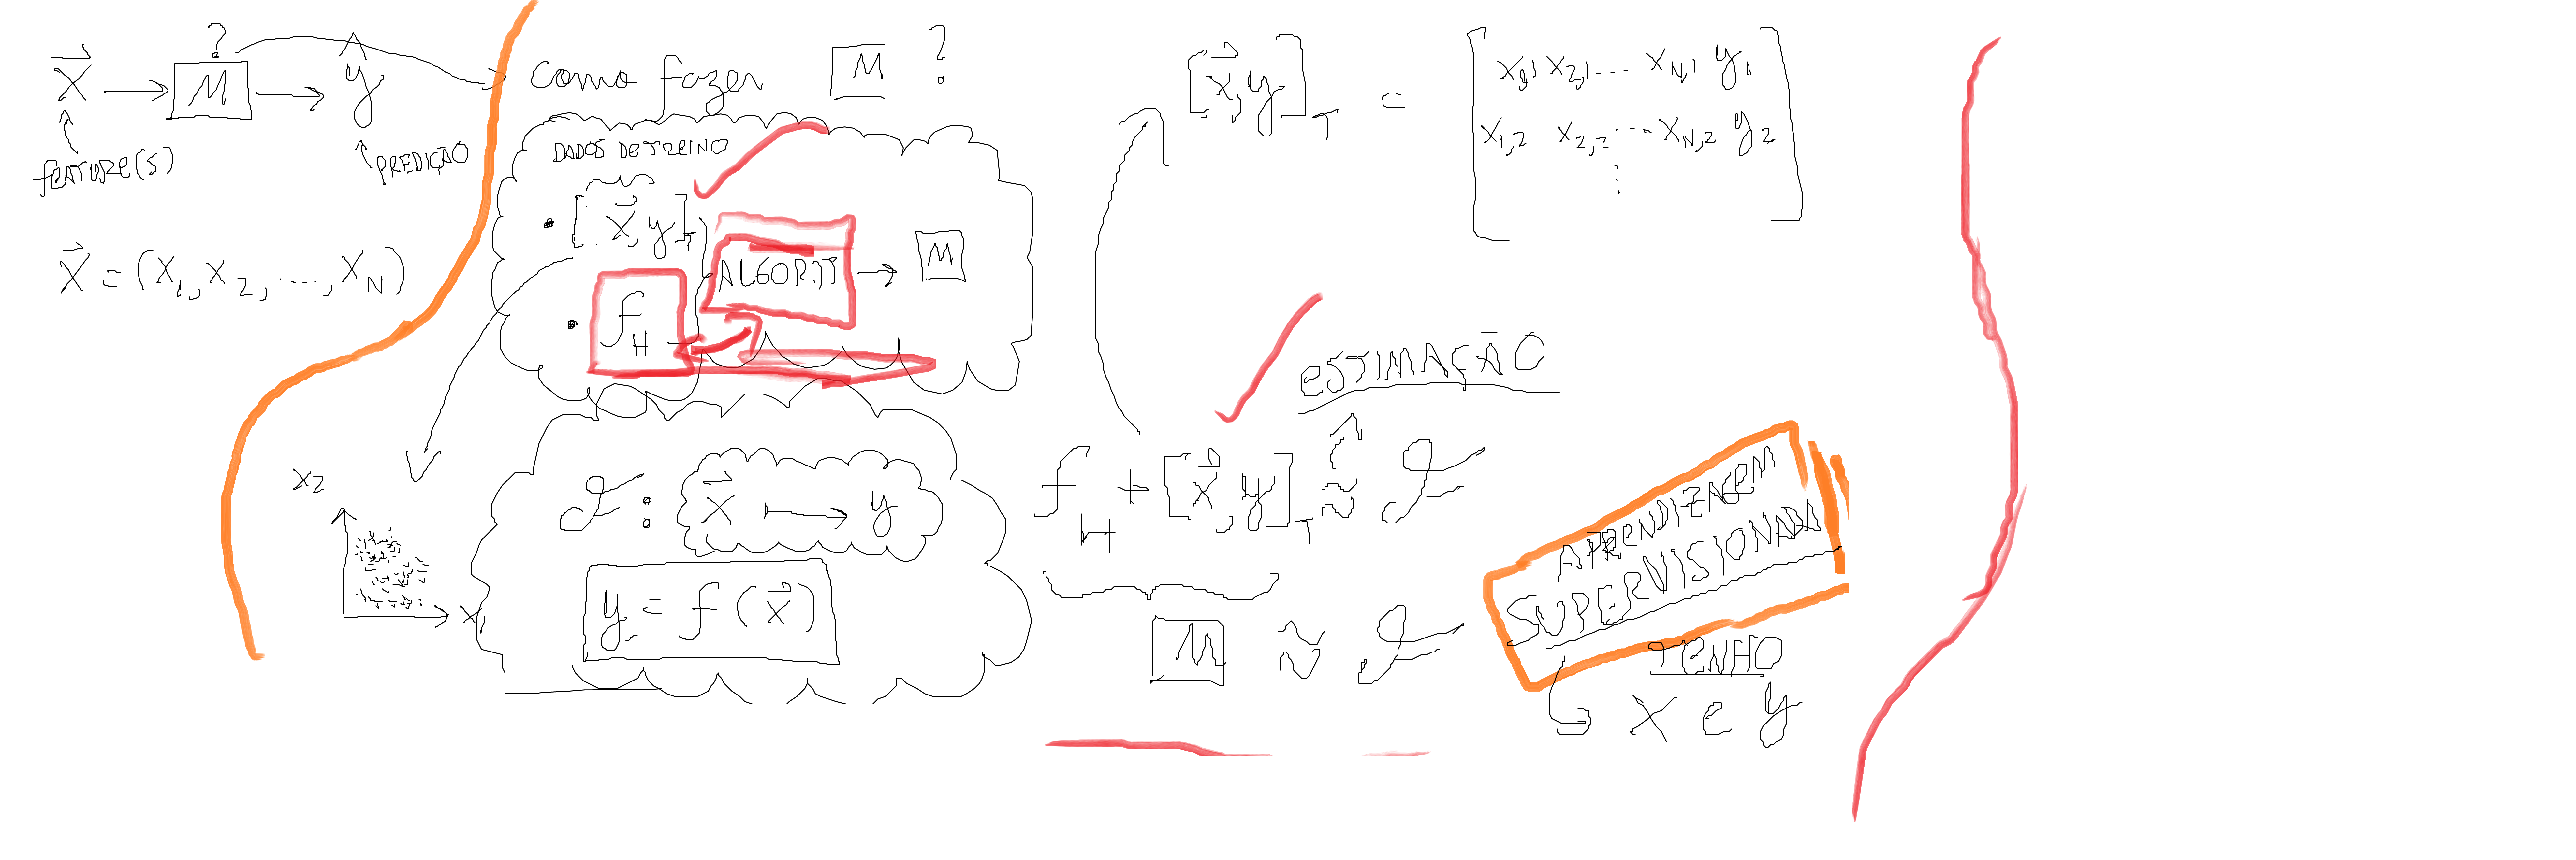 ?
X → M → ŷ
feature(s)
PREDIÇÃO
X = (X1, X2, ..., XN)
como fazer M ?
DADOS DE TREINO
• [X, y]T
ALGORIT → M
• fH
X2
X1
f : X ↦ y
y = f(X)
[x, y]T =
x1,1 x2,1 ... xN,1 y1
x1,2 x2,2 ... xN,2 y2
⋮
ESTIMAÇÃO
fH + [x, y]T ≈ f
M ≈ f
APRENDIZAGEM
SUPERVISIONADA
TENHO
X e y